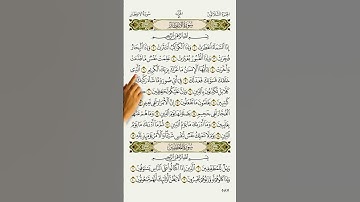 الجزء الثلاثون سورة الانفطار
سورة الانفطار
بسم الله الرحمن الرحيم
إذا السماء انفطرت ١ وإذا الكواكب انتثرت ٢ وإذا البحار
فجرت ٣ وإذا القبور بعثرت ٤ علمت نفس ما قدمت
وأخرت ٥ يأيها الإنسن ما غرك بربك الكريم ٦ الذي
خلقك فسوىك فعدلك ٧ في أي صورة ما شاء ركبك
كلا بل تكذبون بالدين ٩ وإن عليكم لحفظين
كتبين ١١ يعلمون ما تفعلون ١٢ إن الأبرار لفي نعيم
الفجار لفي جحيم ١٤ يصلونها يوم الدين ١٥ وما هم عنها
بغائبين ١٦ وما أدرىك ما يوم الدين ١٧ ثم ما أدرىك ما يوم
الدين ١٨ يوم لا تملك نفس لنفس شيئا والأمر يومئذ لله ١٩
سورة المطففين
بسم الله الرحمن الرحيم
ويل للمطففين ١ الذين إذا اكتالوا على الناس يستوفون ٢
وإذا كالوهم أو وزنوهم يخسرون ٣ ألا يظن أولئك أنهم مبعوثون ٤
٥٨٧